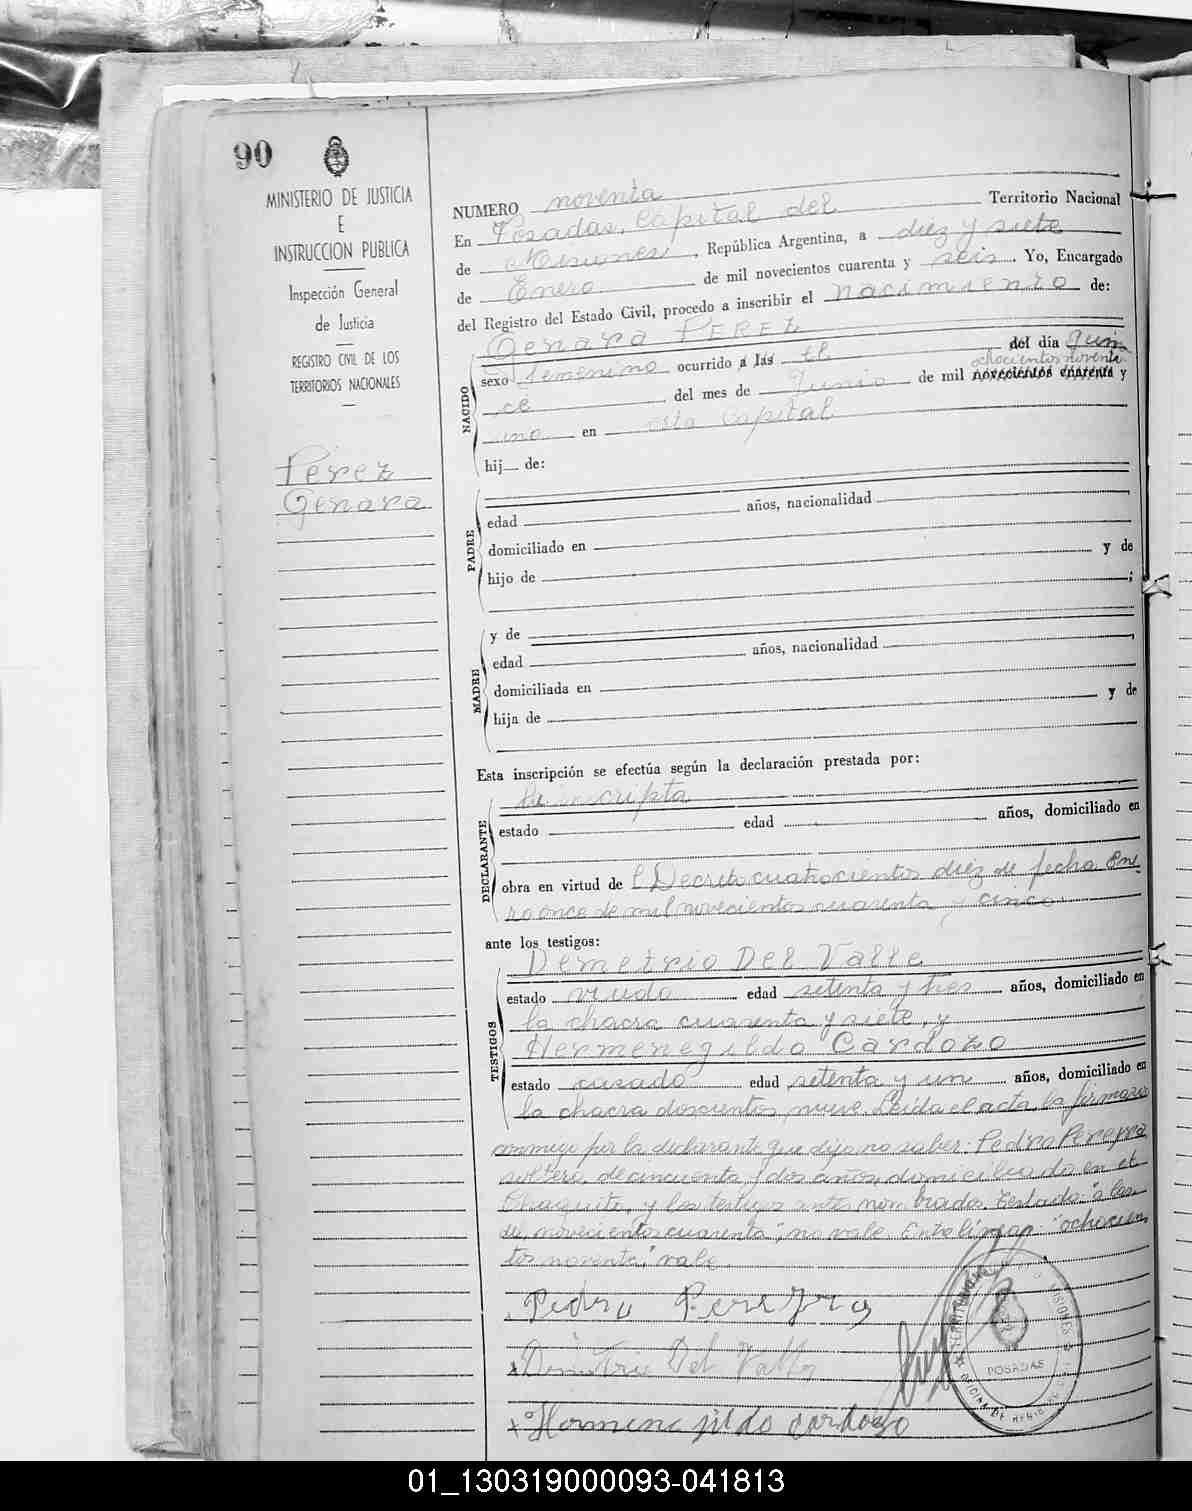 90
MINISTERIO DE JUSTICIA
E
INSTRUCCION PUBLICA
Inspección General
de Justicia
REGISTRO CIVIL DE LOS
TERRITORIOS NACIONALES
Perez
Genara
NUMERO noventa
En Posadas, Capital del Territorio Nacional
de Misiones, República Argentina, a diez y siete
de Enero de mil novecientos cuarenta y seis. Yo, Encargado
del Registro del Estado Civil, procedo a inscribir el nacimiento de:
NACIDO
Genara PEREZ
sexo femenino ocurrido a las el del día quin
ochocientos noventa
ce del mes de Junio de mil novecientos cuarenta y
uno en esta Capital
hij de:
PADRE
edad años, nacionalidad
domiciliado en
hijo de y de
;
MADRE
y de
edad años, nacionalidad
domiciliada en
hija de y de
Esta inscripción se efectúa según la declaración prestada por:
DECLARANTE
la inscripta
estado edad años, domiciliado en
obra en virtud de l Decreto cuatrocientos diez de fecha Ene
ro once de mil novecientos cuarenta y cinco
ante los testigos:
TESTIGOS
Demetrio Del Valle
estado viudo edad setenta y tres años, domiciliado en
la chacra cuarenta y siete, y
Hermenegildo Cardozo
estado casado edad setenta y un años, domiciliado en
la chacra doscientos nueve. Leída el acta, la firmaron
conmigo por la declarante que dijo no saber: Pedro Pereyra
soltero, de cincuenta y dos años, domiciliado en el
Chaquito, y los testigos antes nombrados. Testado: "a las
novecientos cuarenta", no vale. Entrelíneas: "ochocien
tos noventa", vale.
Pedro Pereyra
Demetrio Del Valle
Hermenejildo Cardozo
MISIONES
POSADAS
01_130319000093-041813